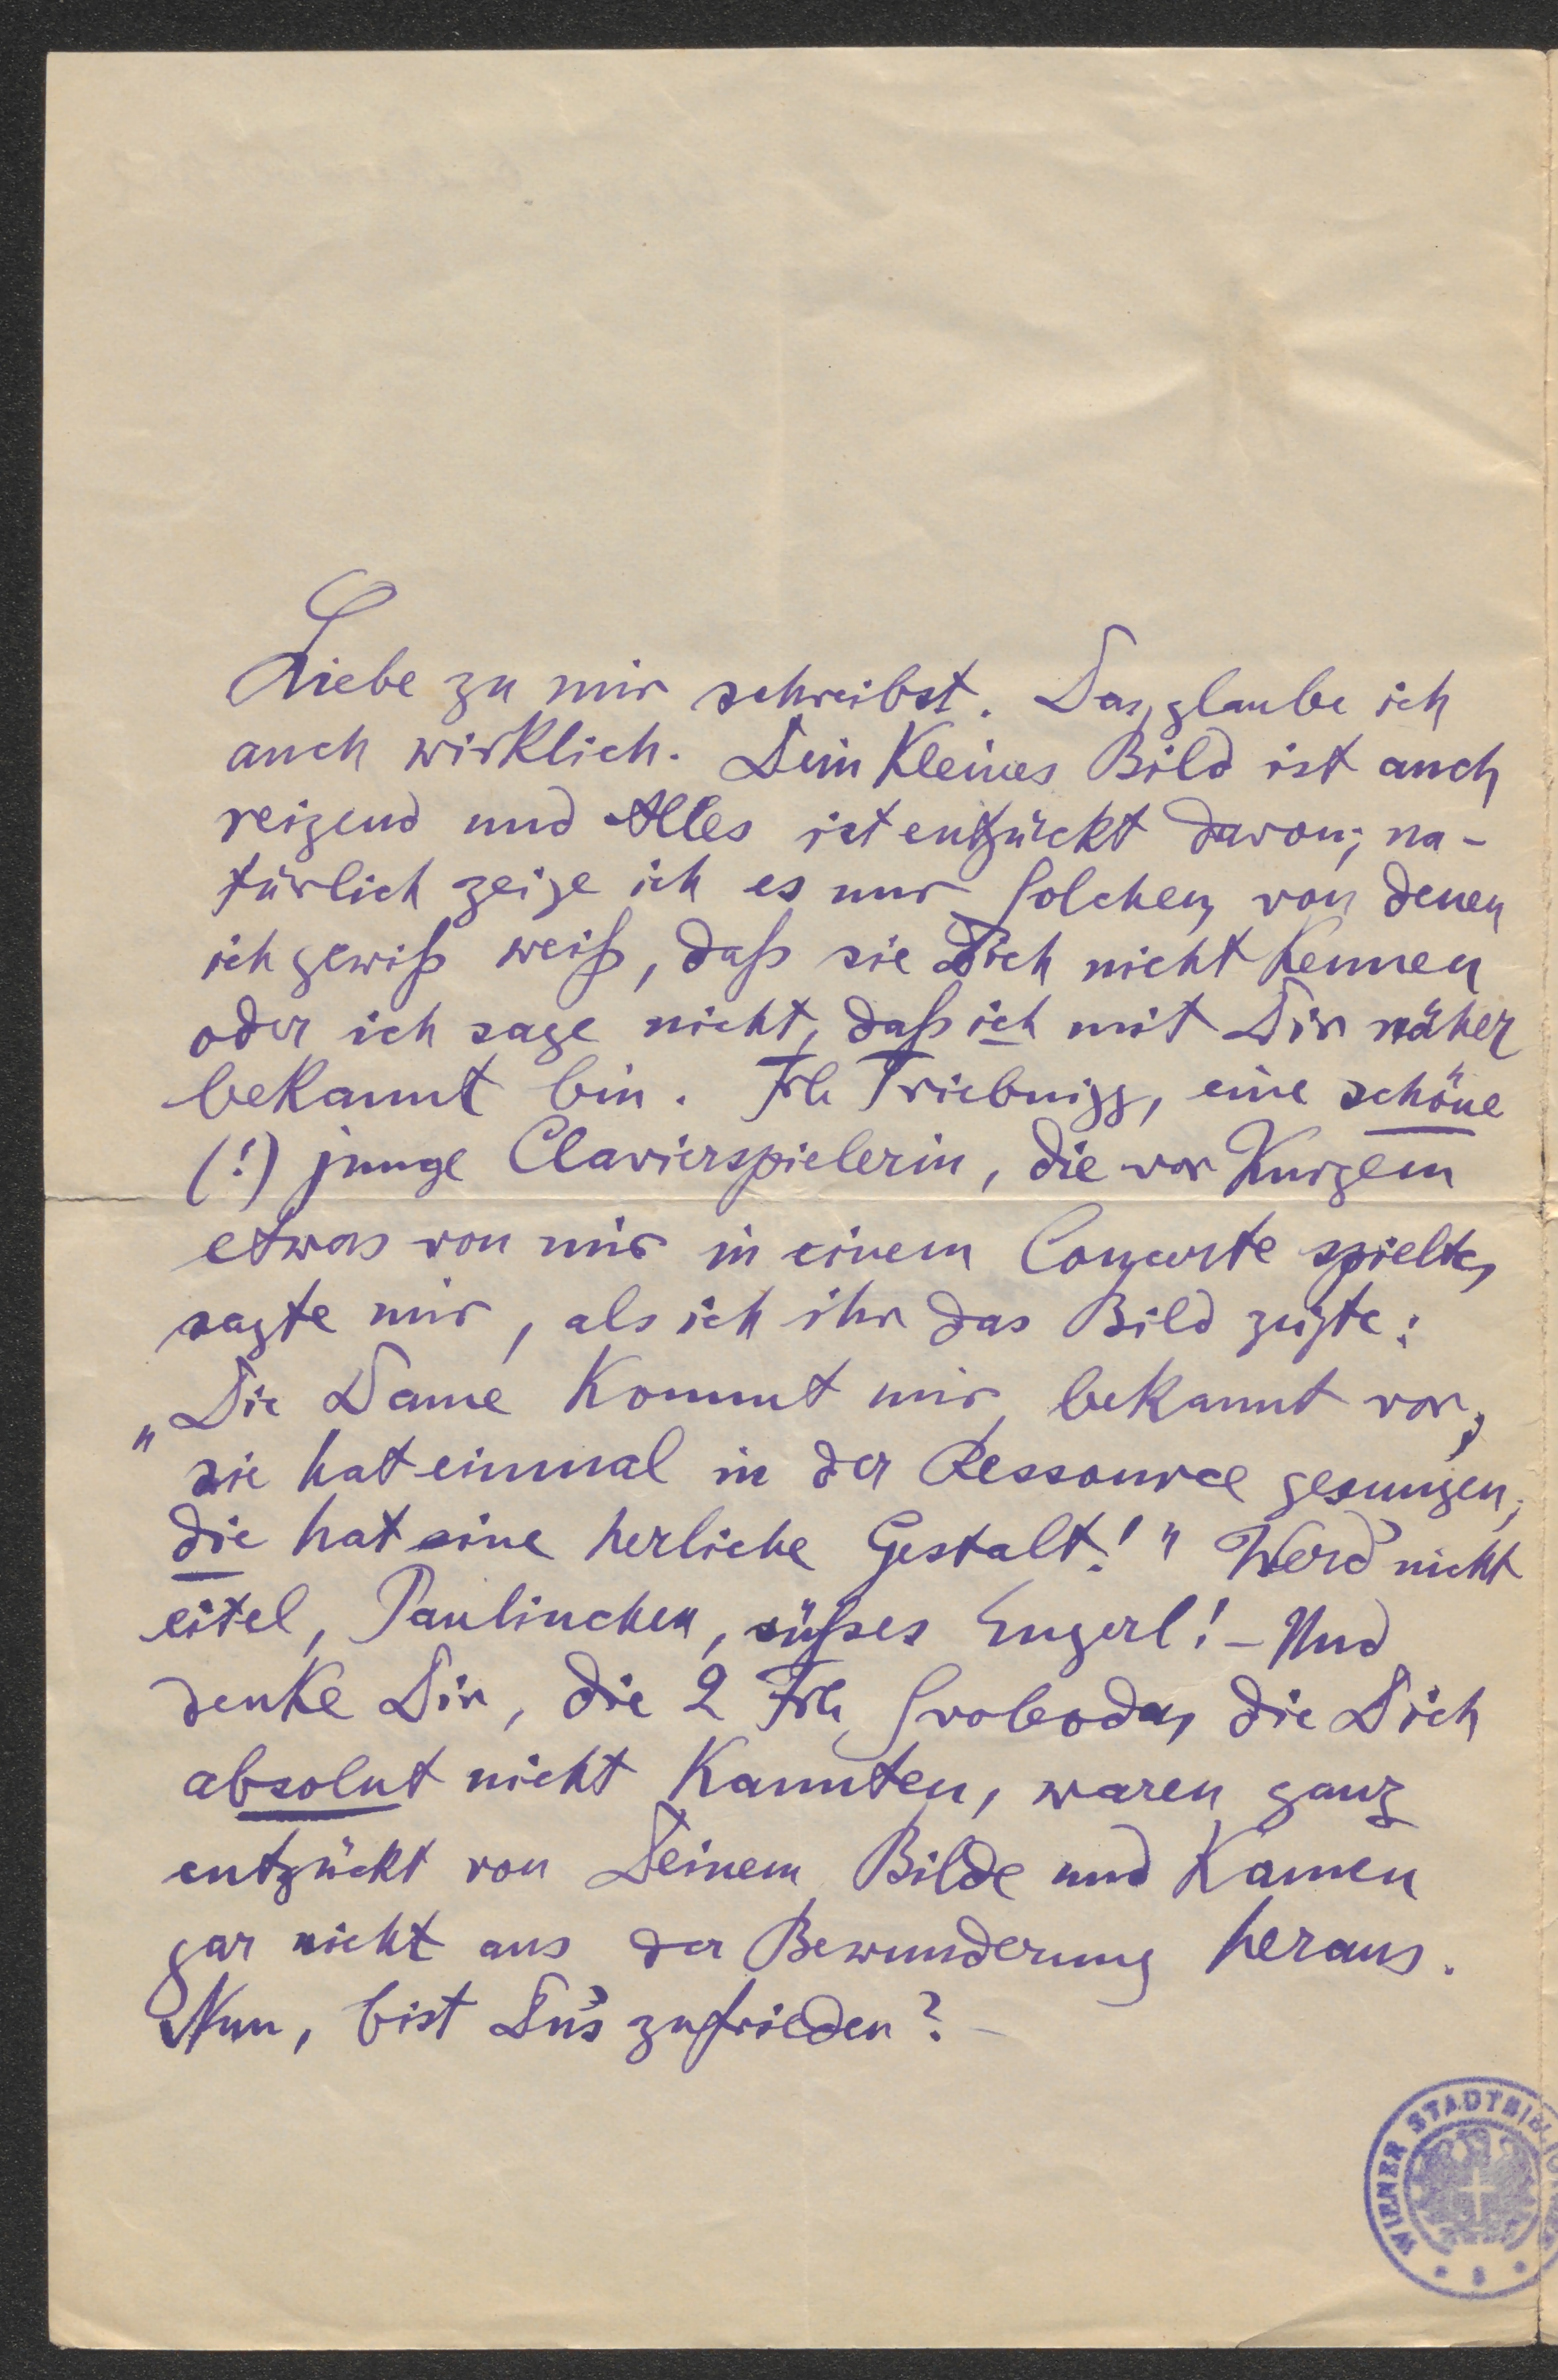 Liebe zu mir schreibst. Das glaube ich
auch wirklich. Dein kleines Bild ist auch
reizend und Alles ist entzückt davon; na-
türlich zeige ich es nur Solchen, von denen
ich gewiß weiß, daß sie Dich nicht kennen
oder ich sage nicht, daß ich mit Dir näher
bekannt bin. Frl. Triebnigg, eine schöne
(!) junge Clavierspielerin, die vor Kurzem
etwas von mir in einem Conzerte spielte,
sagte mir, als ich ihr das Bild zeigte:
„Die Dame kommt mir bekannt vor,
sie hat einmal in der Ressource gesungen;
die hat eine herliche Gestalt!" Werd' nicht
eitel, Paulinchen, süßses Engerl! – Und
denke Dir, die 2 Frl. Svoboda, die Dich
absolut nicht kannten, waren ganz
entzückt von Deinem Bilde und kamen
gar nicht aus der Bewunderung heraus.
Nun, bist Du's zufrieden? –
WIENER STADTBIBLIO